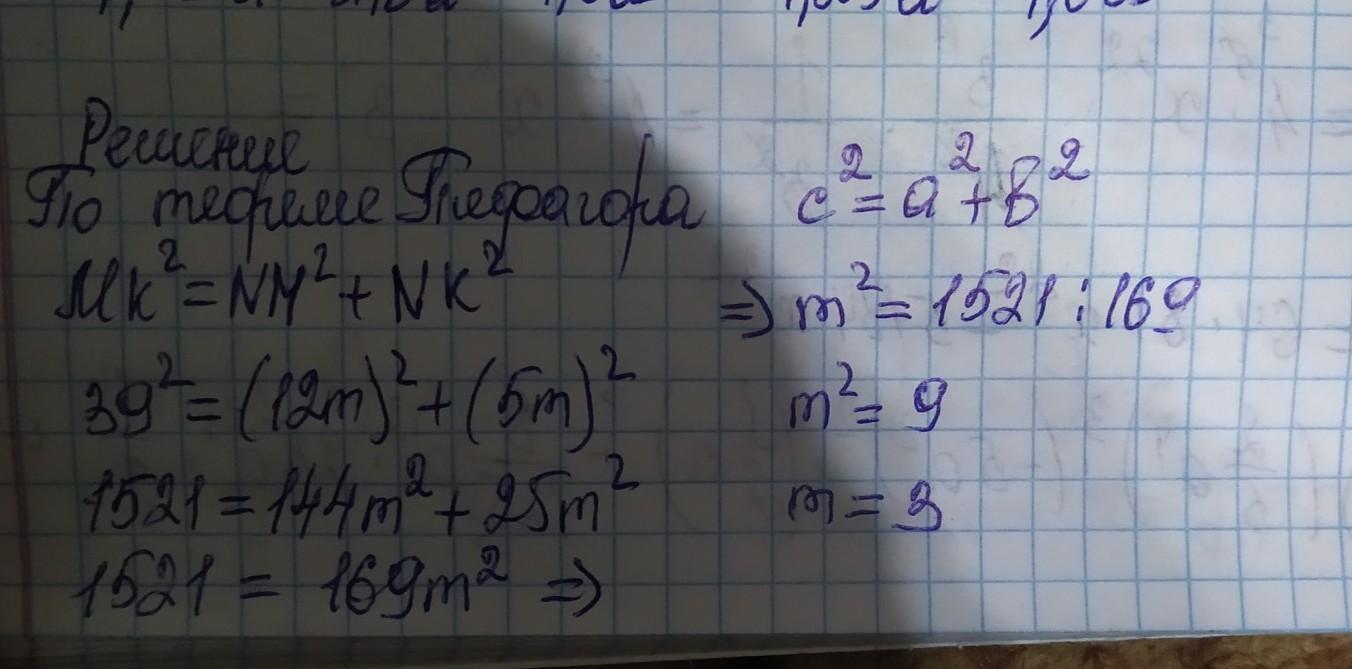 Решение
По теореме Пифагора c² = a² + b²
MK² = NM² + NK²
39² = (12m)² + (5m)²
1521 = 144m² + 25m²
1521 = 169m² ⇒
⇒ m² = 1521 : 169
m² = 9
m = 3